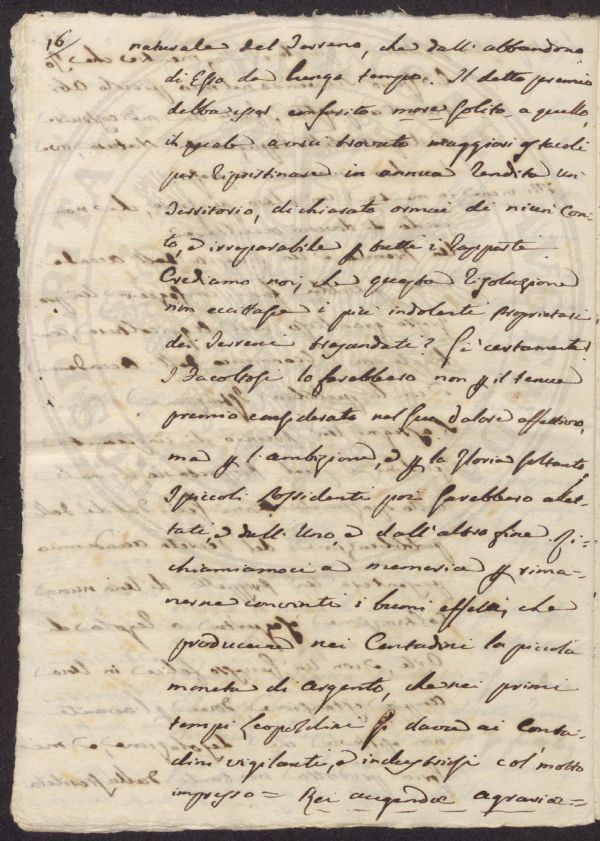 16
naturale del Terreno, che dall'abbandono
di Esso da lungo tempo. Il detto premio
debba esser conferito more solito a quello,
il quale avrà trovato maggiori ostacoli
per ripristinare in annua rendita un
Territorio, dichiarato ormai di niun con-
to, e irreparabile p tutti i rapporti
Crediamo noi, che questa risoluzione
non eccitasse i più indolenti Proprietarj
dei Terreni trasandati? Sì certamente!
I Facoltosi lo farebbero non p il tenue
premio considerato nel suo valore effettivo,
ma p l'ambizione, e p la Gloria soltanto.
I piccoli Possidenti poi sarebbero allet-
tati, e dall'uno, e dall'altro fine. Ri-
chiamiamoci a memoria p rima-
nerne convinti i buoni effetti, che
produceva nei Contadini la piccola
moneta di argento, che nei primi
tempi Leopoldini si dava ai Conta-
dini vigilanti, e industriosi col motto
impresso = Rei augendae agrariae =